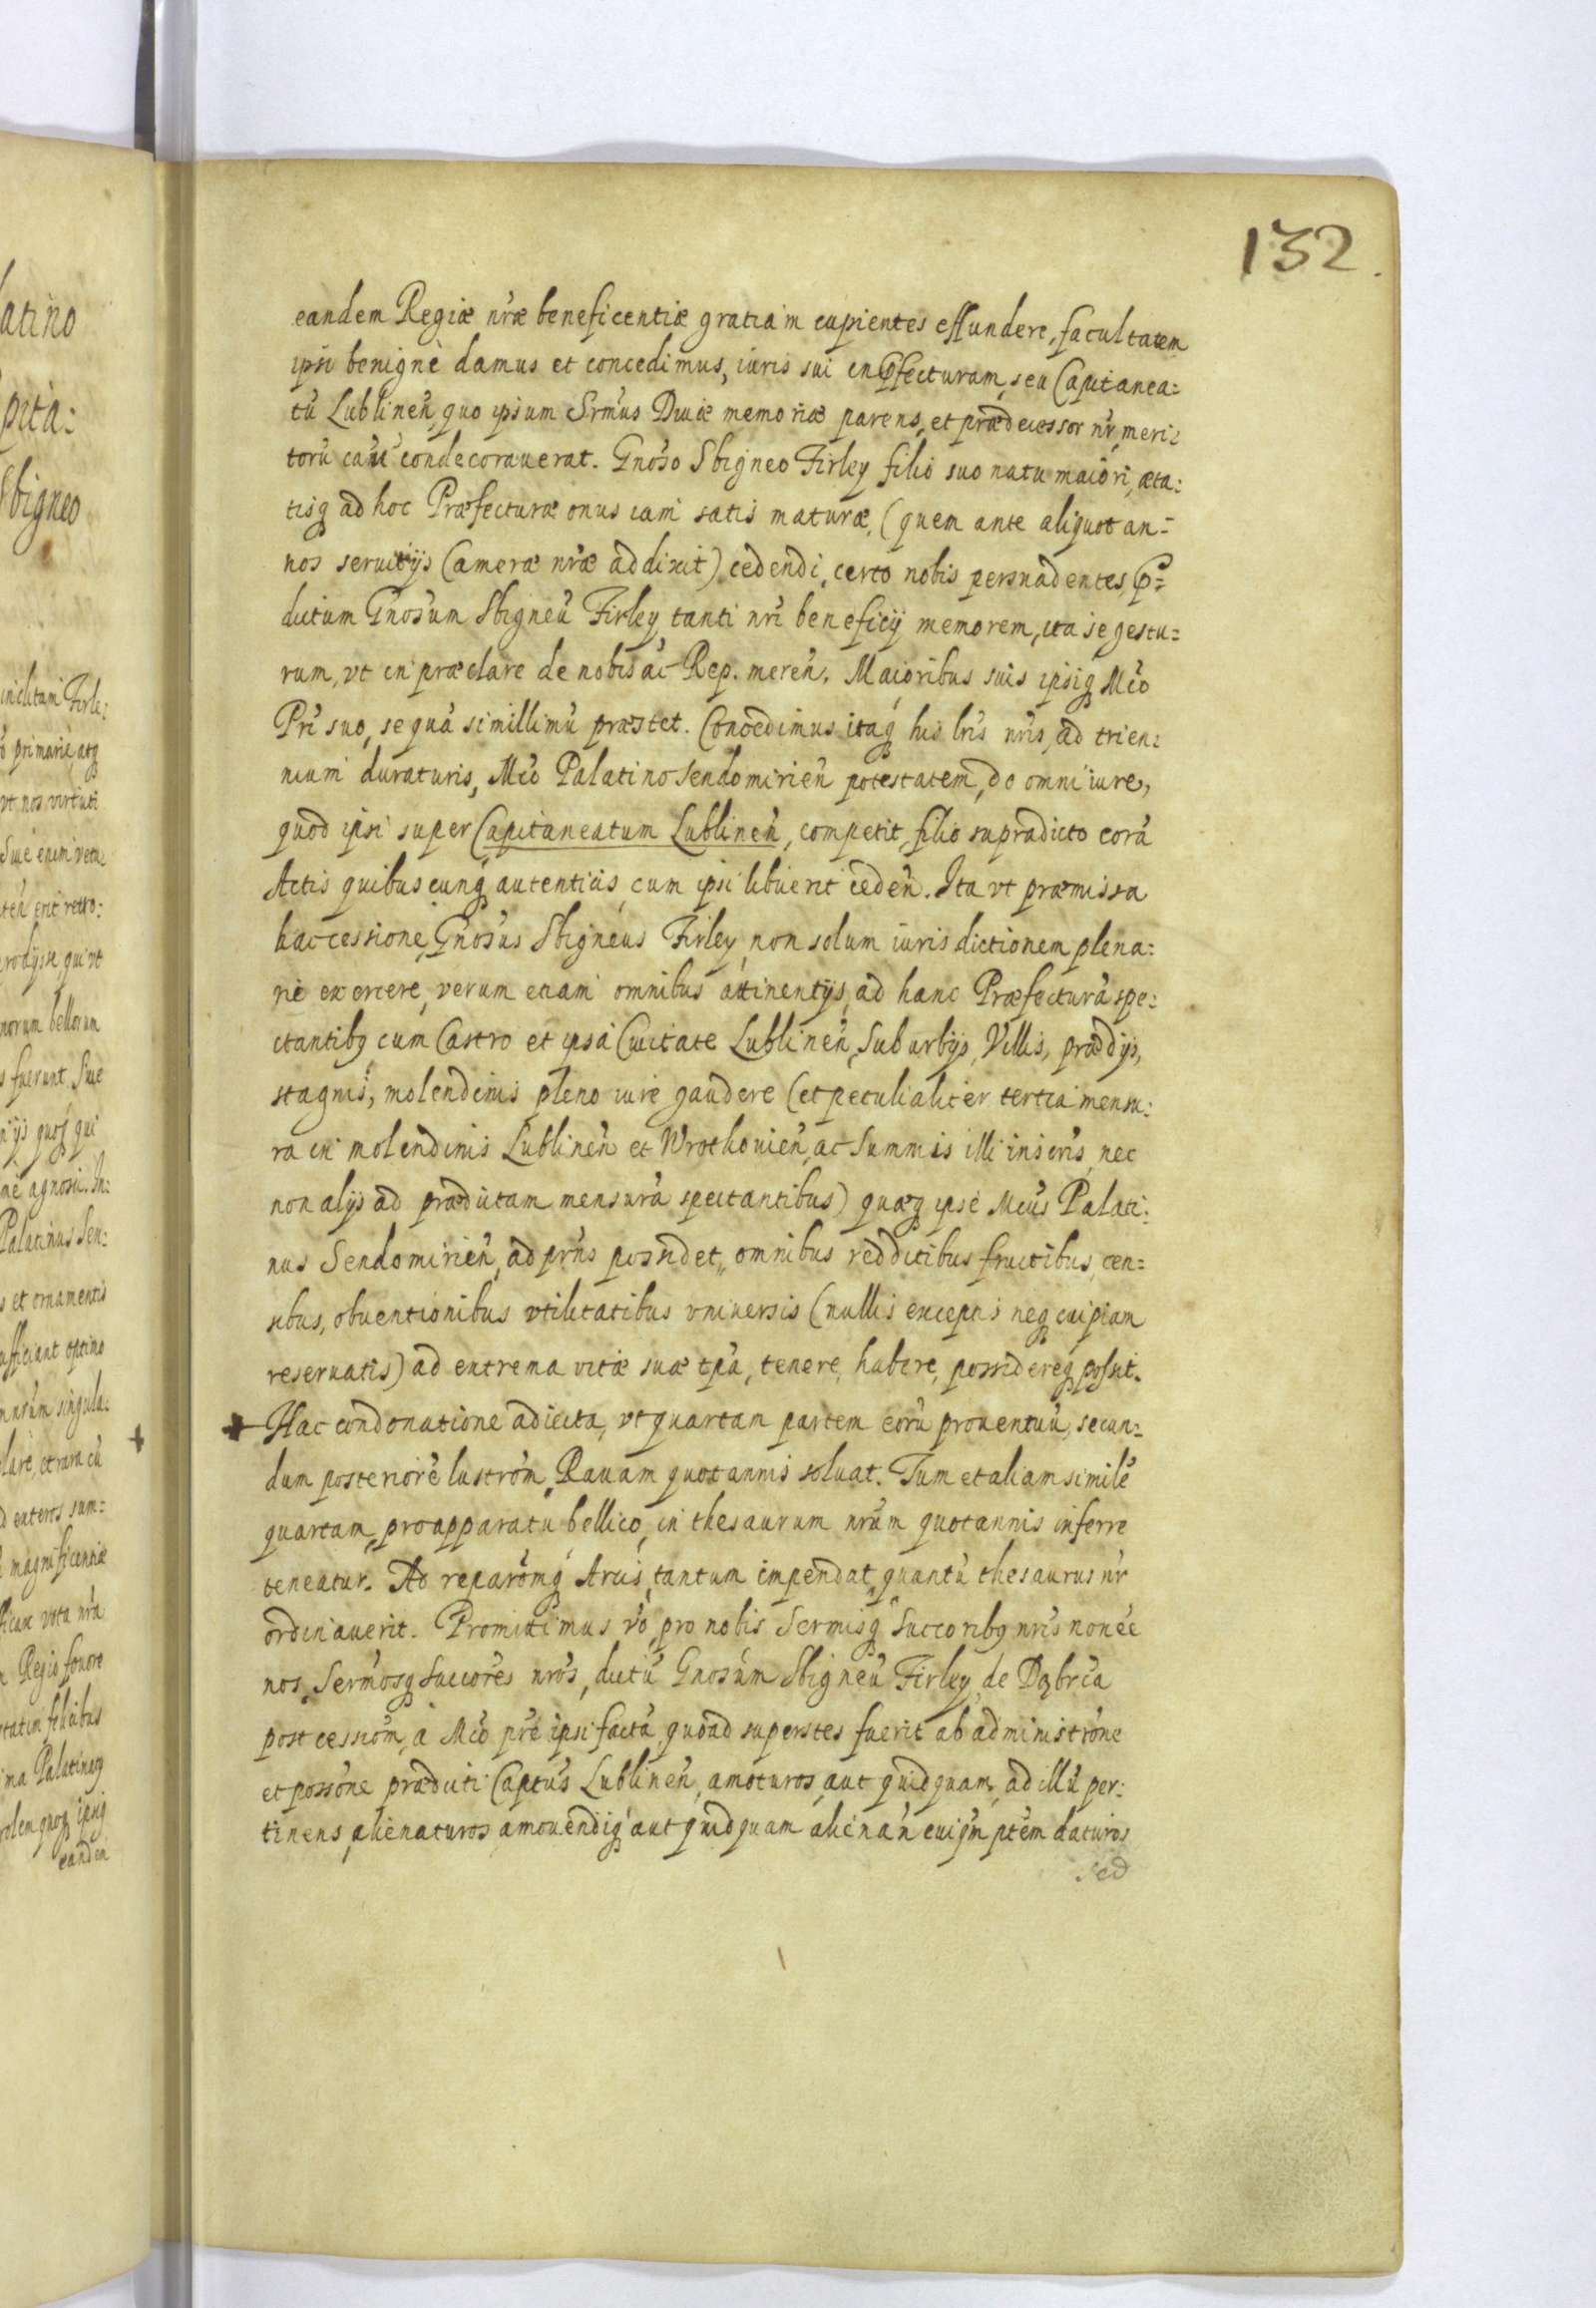 132.
eandem Regiæ nr̃æ beneficentiæ gratiam cupientes effundere, facultatem
ipsi benignè damus et concedimus, iuris sui in Præfecturam, seu Capitanea=
tũ Lublineñ, quo ipsum Srm̃us Diuæ memoriæ parens, et prædecessor nr̃, meri=
torũ causã condecorauerat. Gnoso Sbigneo Firley filio suo natu maiori, æta=
tisq̃ ad hoc Præfecturæ onus iam satis maturæ, (quem ante aliquot an=
nos seruitijs Cameræ nr̃æ addixit) cedendi, certo nobis persuadentes, p=
dictum Gnosum Sbigneũ Firley tanti nr̃i beneficij memorem, ita se gestu=
rum, vt in præclare de nobis ac Rep. mereñ, Maioribus suis ipsiq̃ Mc̃o
Pr̃i suo, se quã simillimũ præstet. Concedimus itaq̃ his lr̃is nr̃is, ad trien=
nium duraturis, Mc̃o Palatino Sendomirieñ potestatem, de omni iure,
quod ipsi super Capitaneatum Lublineñ, competit, filio supradicto corã
Actis quibuscunq̃ autenticis, cum ipsi libuerit cedeñ. Ita vt præmissa
hac cessione, Gnosus Sbigneus Firley, non solum iurisdictionem plena=
riè exercere, verum etiam omnibus attinentijs, ad hanc Præfecturã spe=
ctantibq cum Castro et ipsa Ciuitate Lublineñ, Suburbijs, Villis, prædijs,
stagnis, molendinis pleno iure gaudere (et peculialiter tertia mensu=
ra in molendinis Lublineñ et Wrothouieñ, ac Summis illi inscr̃is, nec
non alijs ad prædictam mensurã spectantibus) quæq̃ ipse Mc̃us Palati=
nus Sendomirieñ, ad pr̃ns possidet, omnibus redditibus fructibus, cen=
sibus, obuentionibus vtilitatibus vniuersis (nullis exceptis neq̃ cuipiam
reseruatis) ad extrema vitæ suæ tp̃a, tenere, habere, possidereq̃ possit.
+ Hac condonatione adiecta, vt quartam partem eorũ prouentuũ, secun=
dum posteriorẽ lustroñm, Rauam quotannis soluat. Tum et aliam similẽ
quartam, pro apparatu bellico, in thesaurum nr̃um quotannis inferre
teneatur. Ad reparoñmq̃ Arcis, tantum impendat, quantũ thesaurus nr̃
ordinauerit. Promittimus vo, pro nobis Sermisq̃ Succoribq nr̃is non eẽ
nos, Sermosq̃ Succores nr̃os, dictũ Gnosum Sbigneũ Firley, de Dąbrc̃a
post cessioñm, à Mc̃o pr̃e ipsi factã, quoad superstes fuerit ab administr̃one
et possõne prædicti Capt̃us Lublineñ, amoturos, aut quidquam, ad illũ per=
tinens, alienaturos, amouendiq̃ aut quidquam alienañ cuiq̃m pt̃em daturos
sed